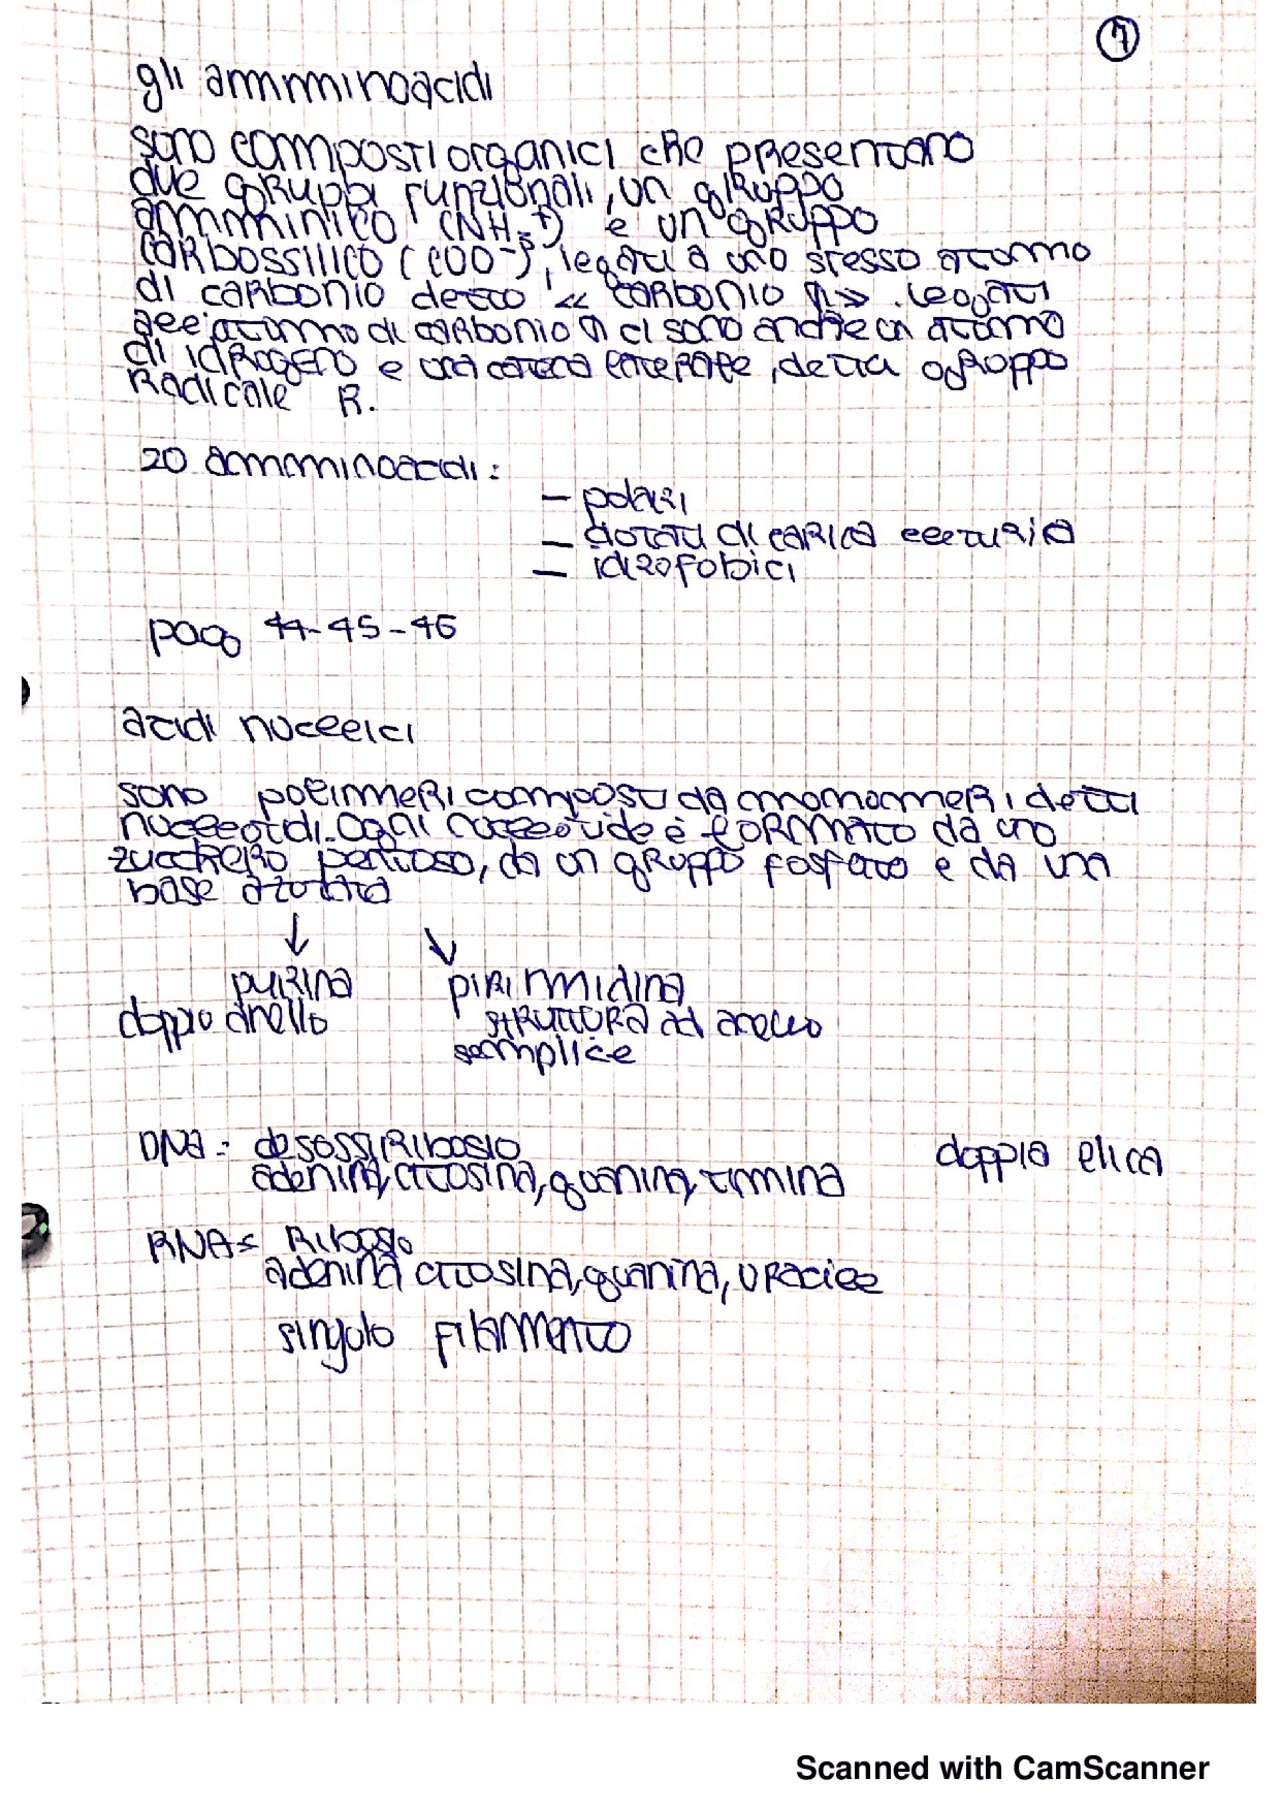 1
gli amminoacidi
sono composti organici che presentano
due gruppi funzionali, un gruppo
amminico (NH3+) e un gruppo
carbossilico (COO-), legati a uno stesso atomo
di carbonio detto « carbonio α». legati
all'atomo di carbonio α ci sono anche un atomo
di idrogeno e una catena laterale, detta gruppo
Radicale R.
20 amminoacidi:
- polari
- dotati di carica elettrica
- idrofobici
pag 44-45-46
acidi nucleici
sono polimeri composti da monomeri detti
nucleotidi. Ogni nucleotide è formato da uno
zucchero pentoso, da un gruppo fosfato e da una
base azotata
↓ ↓
purina pirimidina
doppio anello struttura ad anello
semplice
DNA: desossiribosio doppia elica
adenina, citosina, guanina, timina
RNA: Ribosio
adenina citosina, guanina, uracile
singolo filamento
Scanned with CamScanner